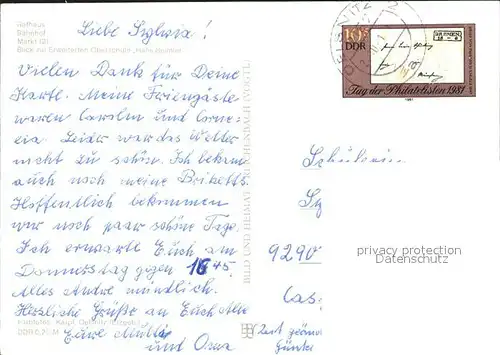 Rathaus
Bahnhof
Markt (2)
Blick zur Erweiterten Oberschule
Liebe Sylvia!
Vielen Dank für Deine
Karte. Meine Feriengäste
waren Carolin und Corne-
lia. Leider war das Wetter
nicht zu schön. Ich bekam
auch noch meine Briketts.
Hoffentlich bekommen
wir noch paar schöne Tage.
Ich erwarte Euch am
Donnerstag gegen 16 45.
Alles Andre mündlich.
Herzliche Grüße an Euch Alle
Eure Mutti
und Oma
BILD UND HEIMAT REICHENBACH (VOGTL)
10+5
DDR
Tag der Philatelisten 1981
Schülerin
Sy
9290
privacy protection
Datenschutz